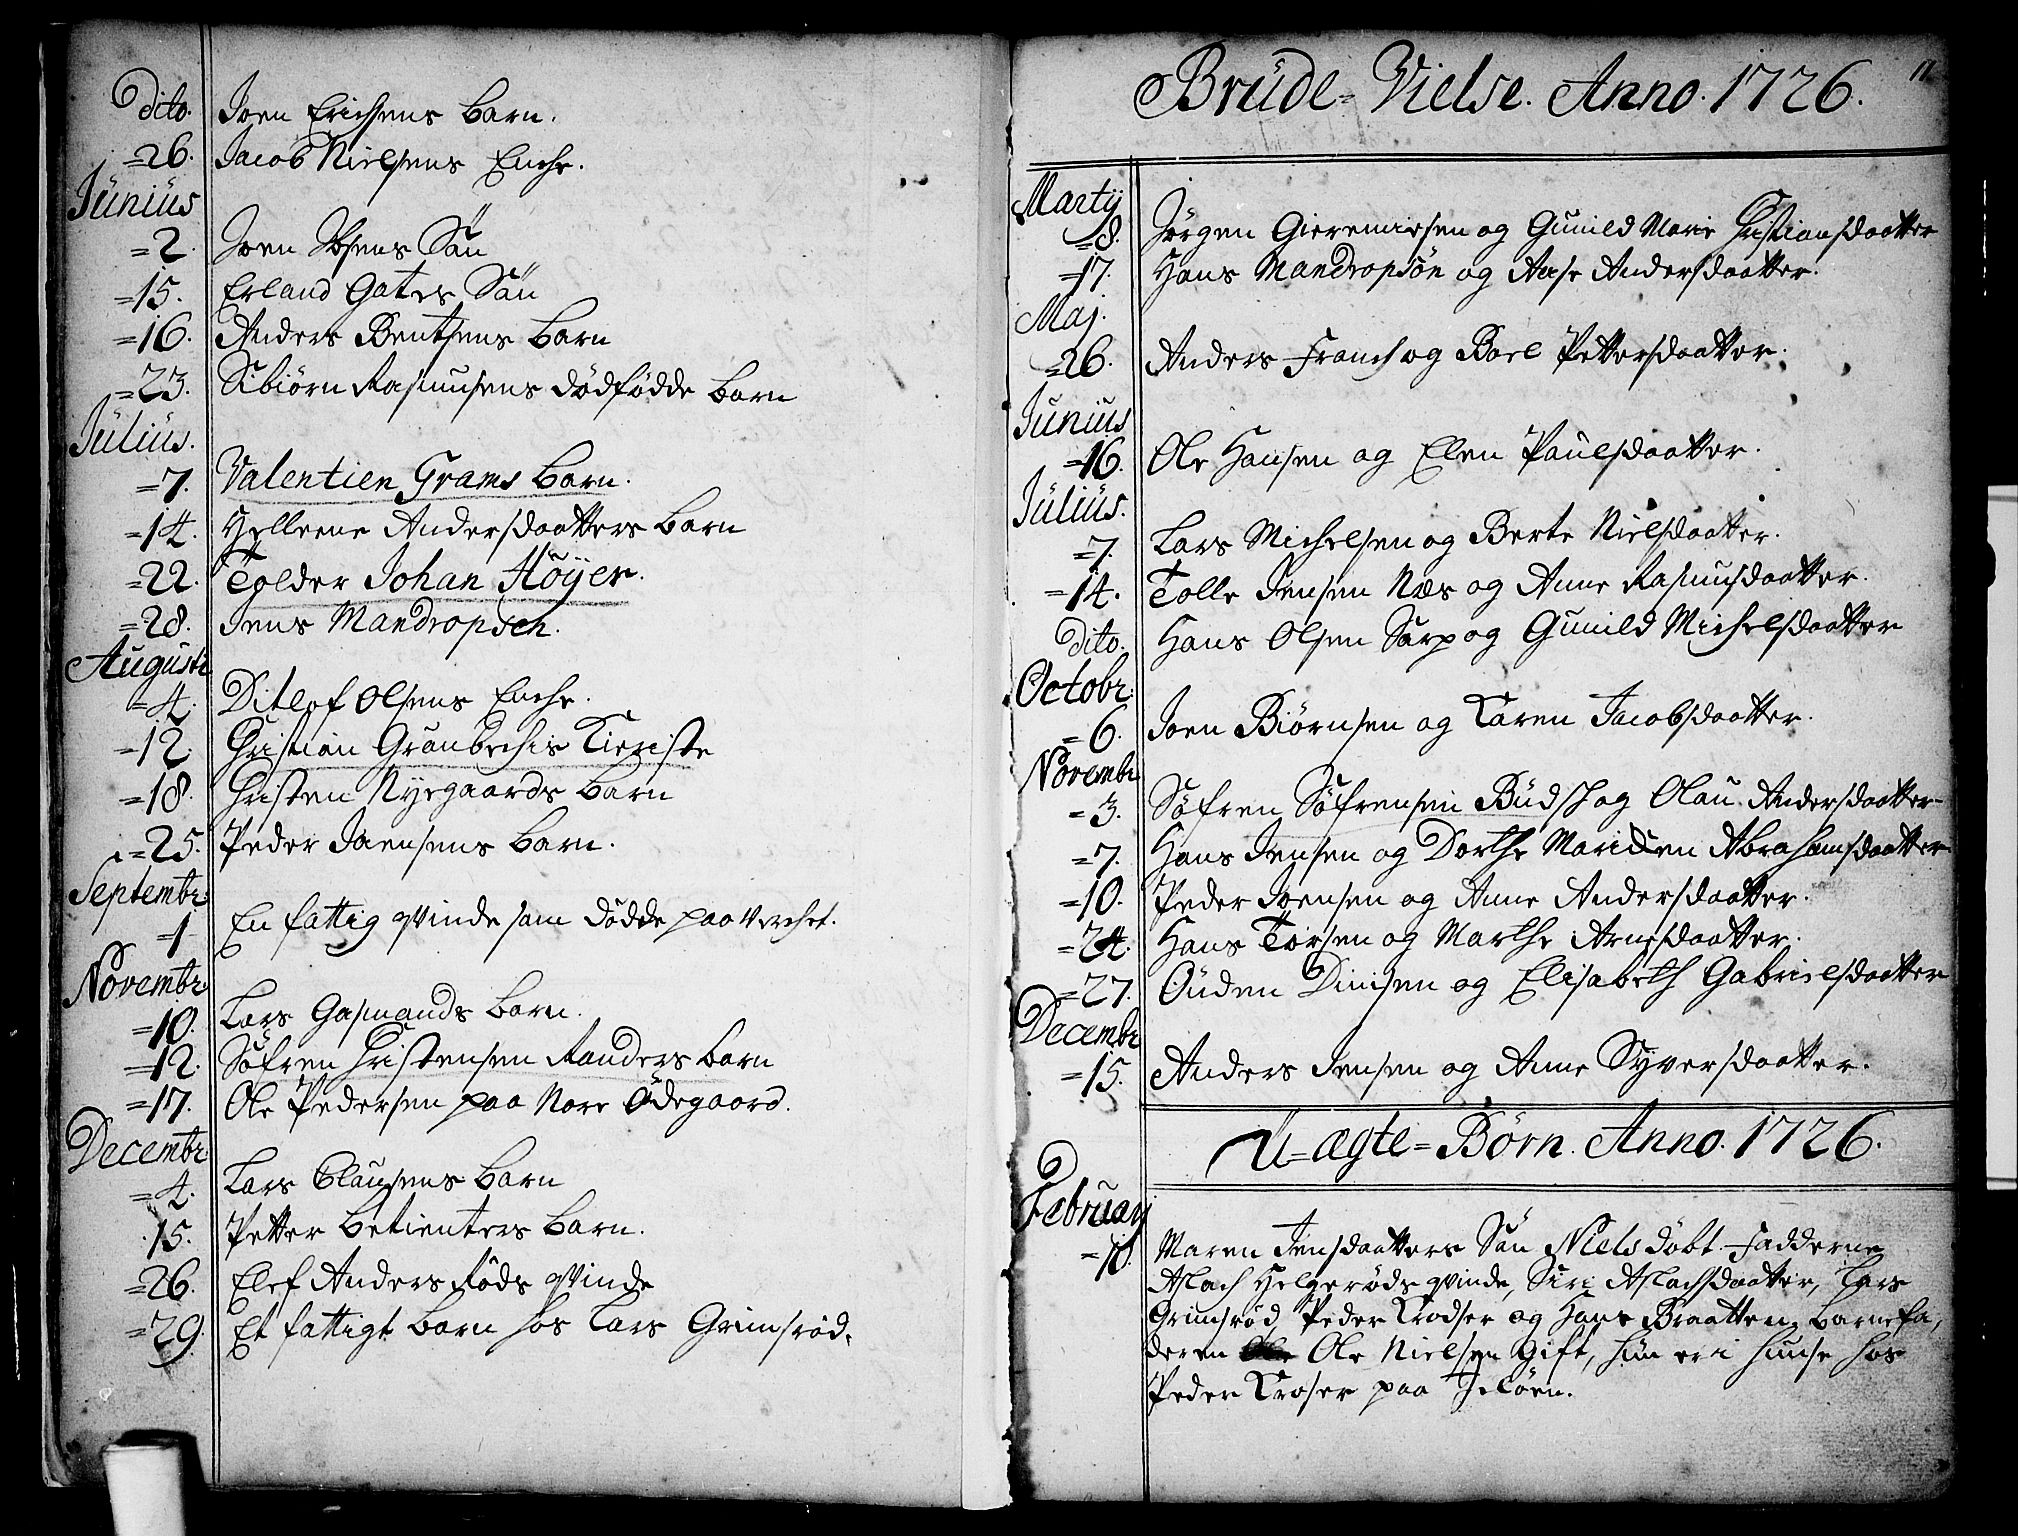 Dito. Joen Erichsens barn.
=26. Jacob Nielsens Enche.
Junius
=2. Joen Ibsens Sön
=15. Erland Gates Sön
=16. Anders Bentsens barn
=23. Sibiörn Rasmusens dödfödde barn
Julius.
=7. Valentien Grams barn.
=14. Helleene Andersdaatters barn
=22. Tolder Johan Höÿer.
=28. Jens Mandropsen.
Augusti
=4. Ditlof Olsens Enche.
=12. Christian Grönbechs Kieriste
=18. Christen Nyegaards barn
=25. Peder Joensens barn.
Septembr:
=1 En fattig qvinde som dödde paa Verchet.
Novembr:
=10. Lars Gasmands barn.
=12. Söfren Christensen Randers barn
=17. Ole Pedersen paa Nore Ödegaard.
Decembr:
=4. Lars Clausens barn
15. Petter betienters barn.
=26. Elef Anders Röds qvinde
=29. Et fattigt barn hos Lars Grimsröd.
11
Brude=Vielse. Anno. 1726.
Martij
=8. Jörgen Gieremiesen og Gunild Marie Christiansdaatter
=17. Hans Mandropsön og Aase Andersdaatter.
Maj.
=26. Anders Franch og Borel Pettersdaatter.
Junius
=16. Ole Hansen og Elen Paulsdaatter.
Julius.
=7. Lars Michelsen og Berte Nielsdaatter.
=14. Tolle Jensen Næs og Anne Rasmusdaatter.
Dito. Hans Olsen Sarp og Gunild Michelsdaatter
Octobr:
=6. Joen Biörnsen og Karen Jacobsdaatter.
Novembr
=3. Söfren Söfrensen Budsk og Olau Andersdaatter
=7. Hans Jensen og Dorthe Maricken Abrahamsdaatter
=10. Peder Joensen og Anne Andersdaatter.
=24. Hans Torsen og Marthe Arnesdaatter.
=27. Ouden Dinisen og Elisabeth Gabrielsdaatter
Decembr
=15. Anders Jensen og Anne Syversdaatter.
U=ægte=Börn. Anno. 1726.
Februarij
=10. Maren Jensdaatters Sön Niels döbt. Fadderne
Aslach Helgeröds qvinde, Siri Aslachsdaatter, Lars
Grimsröd, Peder Krodser og Hans Braatten, barnefa,
deren Ole Nielsen Gift, hun er i huuse hos
Peder Kroser paa Jelöen.